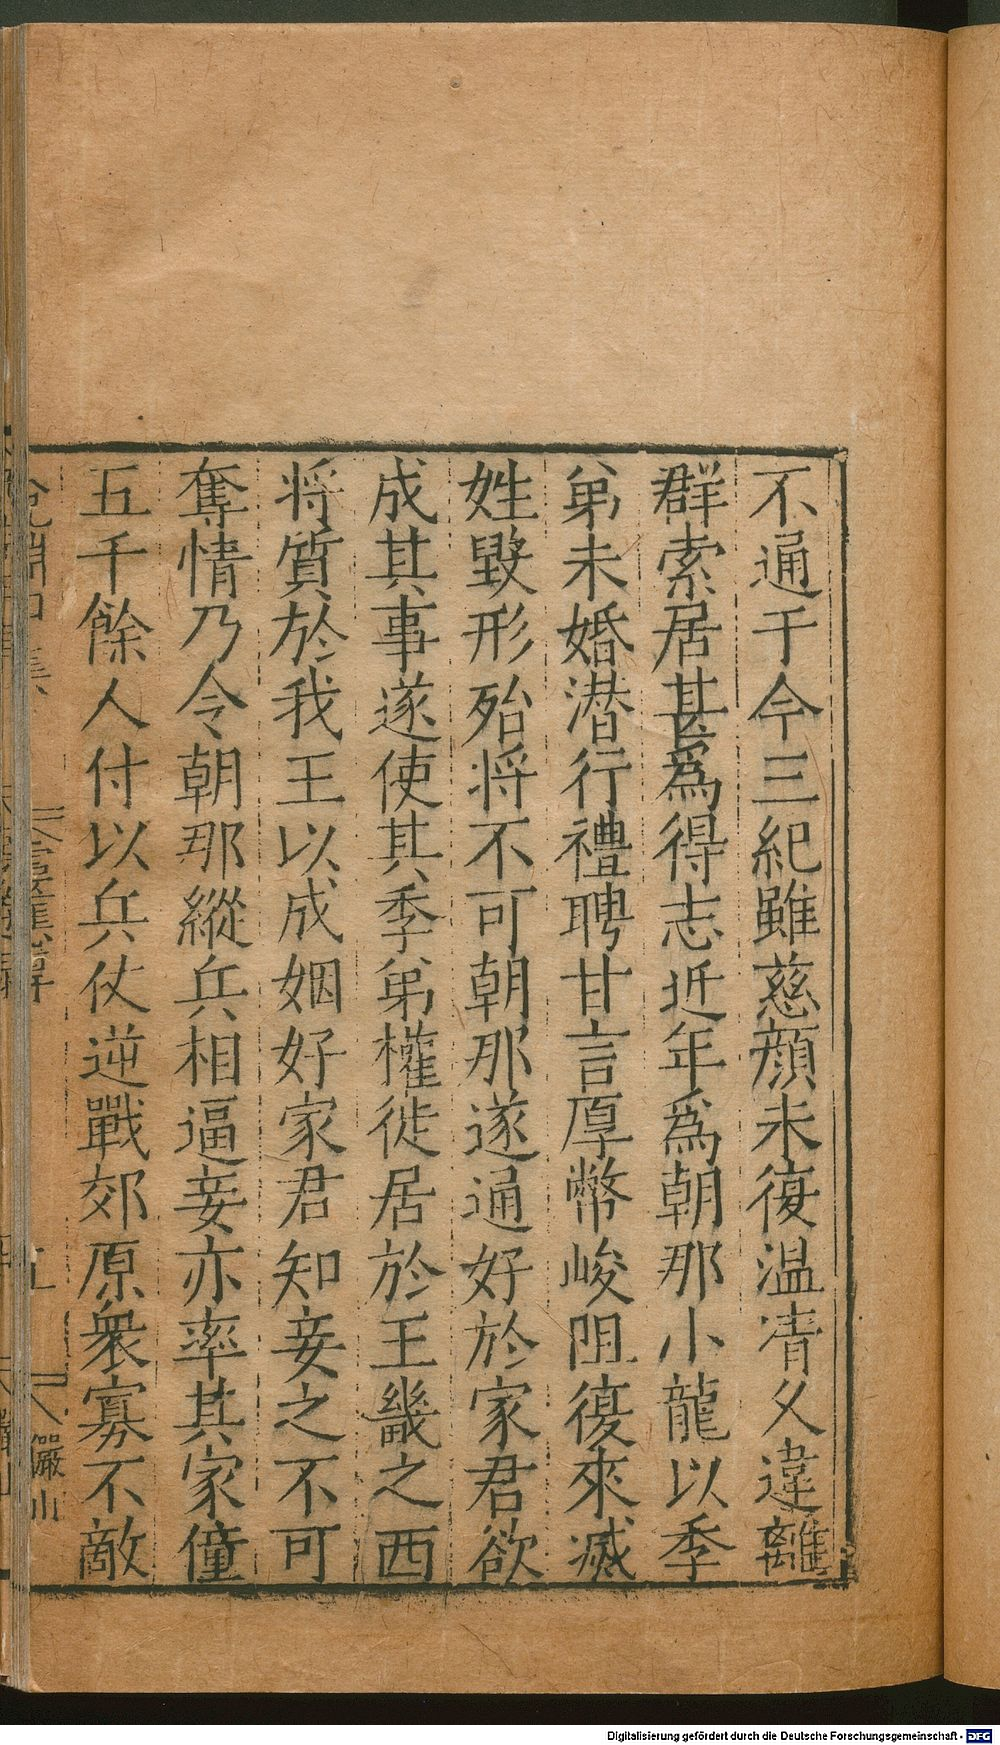 不通于今三紀雖慈顔未復温凊乆違離
群索居甚爲得志近年爲朝那小龍以季
弟未婚潜行禮聘甘言厚幣峻阻復來滅
姓毀形殆将不可朝那遂通好於家君欲
成其事遂使其季弟權徙居於王畿之西
将質於我王以成姻好家君知妾之不可
奪情乃令朝那縱兵相逼妾亦率其家僮
五千餘人付以兵仗逆戰郊原衆寡不敵
儼山
Digitalisierung gefördert durch die Deutsche Forschungsgemeinschaft - DFG